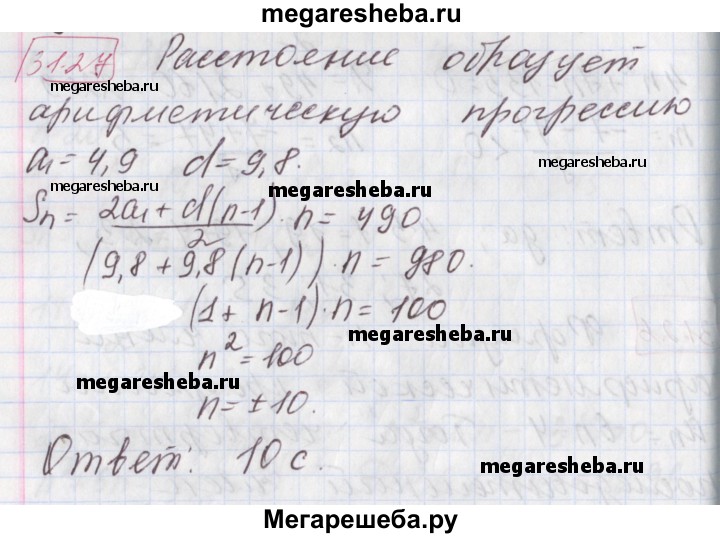 megaresheba.ru
31.27 Расстояние образует
megaresheba.ru
арифметическую прогрессию
a₁ = 4,9 d = 9,8.
megaresheba.ru
megaresheba.ru
megaresheba.ru
Sn = (2a₁ + d(n-1))/2 · n = 490
(9,8 + 9,8(n-1)) · n = 980.
(1 + n-1) · n = 100
megaresheba.ru
n² = 100
megaresheba.ru
n = ± 10.
Ответ: 10 с.
megaresheba.ru
Мегарешеба.ру